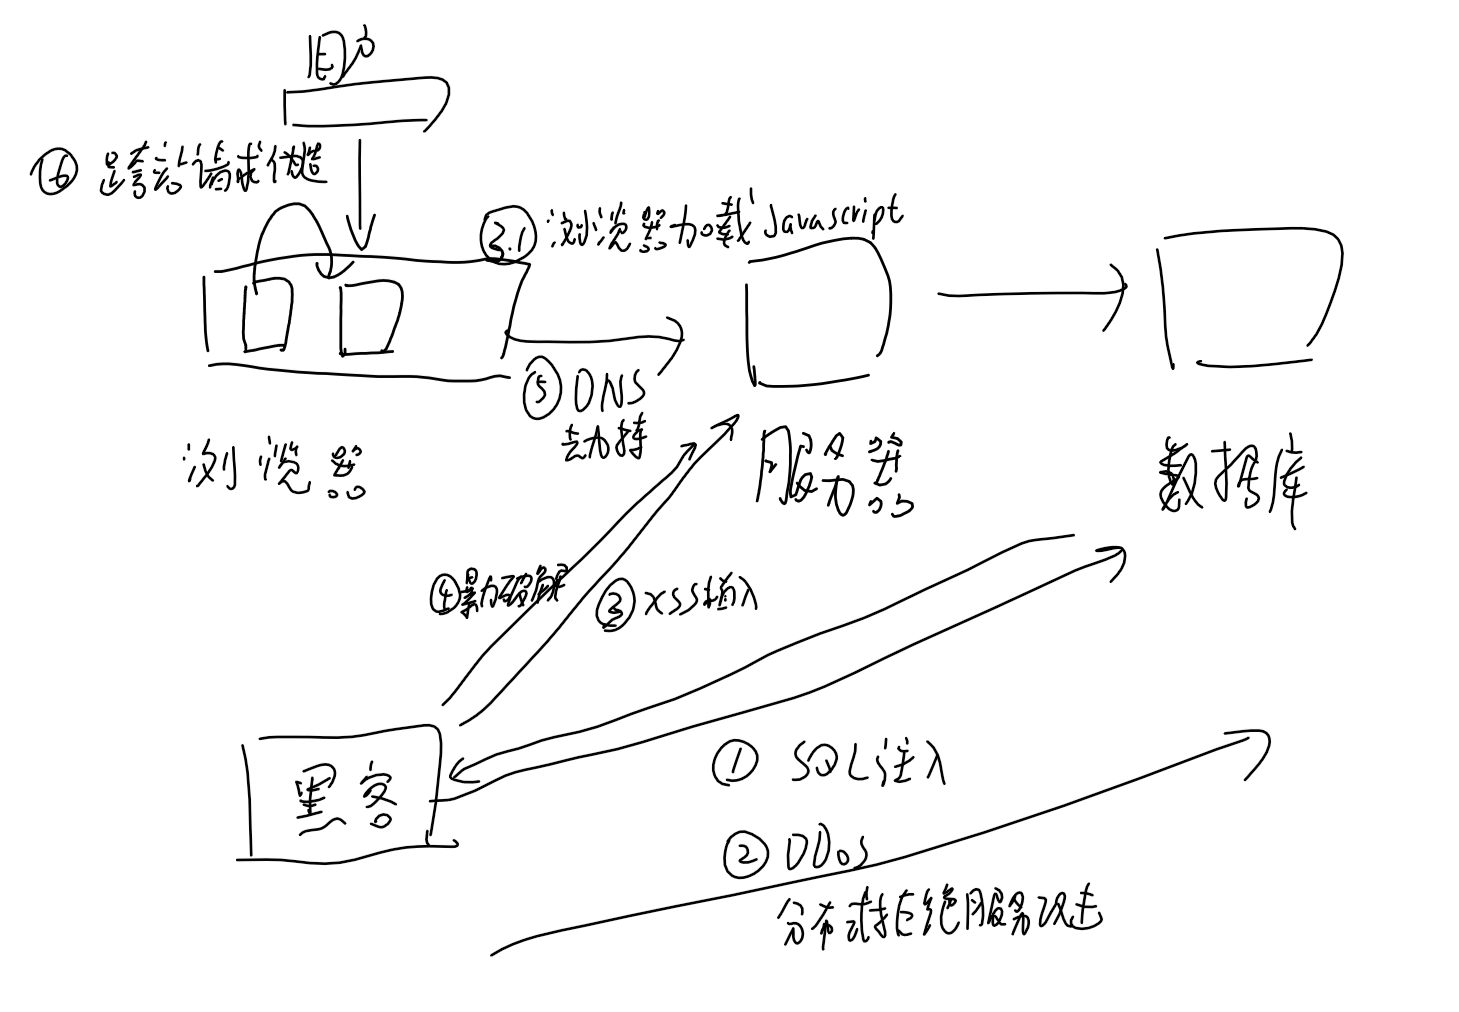 用户
⑥ 跨站请求伪造
3.1 浏览器加载Javascript
⑤ DNS
劫持
浏览器
服务器
数据库
④暴力破解
③ XSS植入
黑客
① SQL注入
② DDoS
分布式拒绝服务攻击